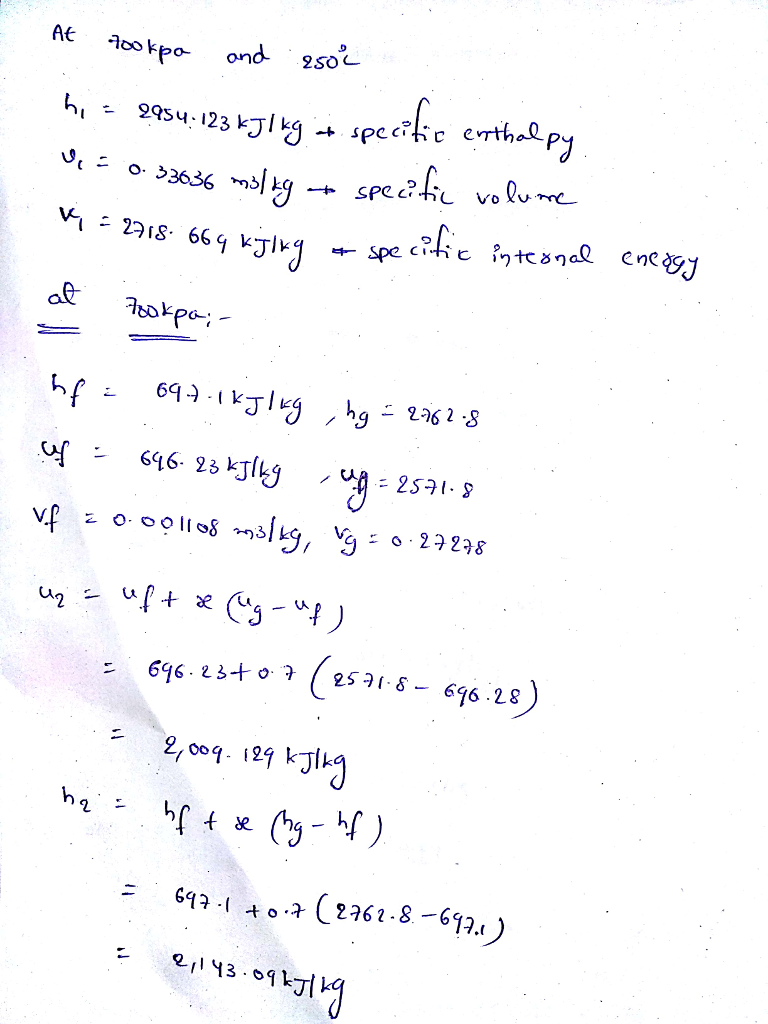 At 700kpa and 250°C
h1 = 2954.123 kJ/kg → specific enthalpy
v1 = 0.33636 m3/kg → specific volume
u1 = 2718.669 kJ/kg → specific internal energy
at 700kpa:-
hf = 697.1 kJ/kg, hg = 2762.8
uf = 696.23 kJ/kg, ug = 2571.8
vf = 0.001108 m3/kg, vg = 0.27278
u2 = uf + x (ug - uf)
= 696.23 + 0.7 (2571.8 - 696.28)
= 2,009.129 kJ/kg
h2 = hf + x (hg - hf)
= 697.1 + 0.7 (2762.8 - 697.1)
= 2,143.09 kJ/kg